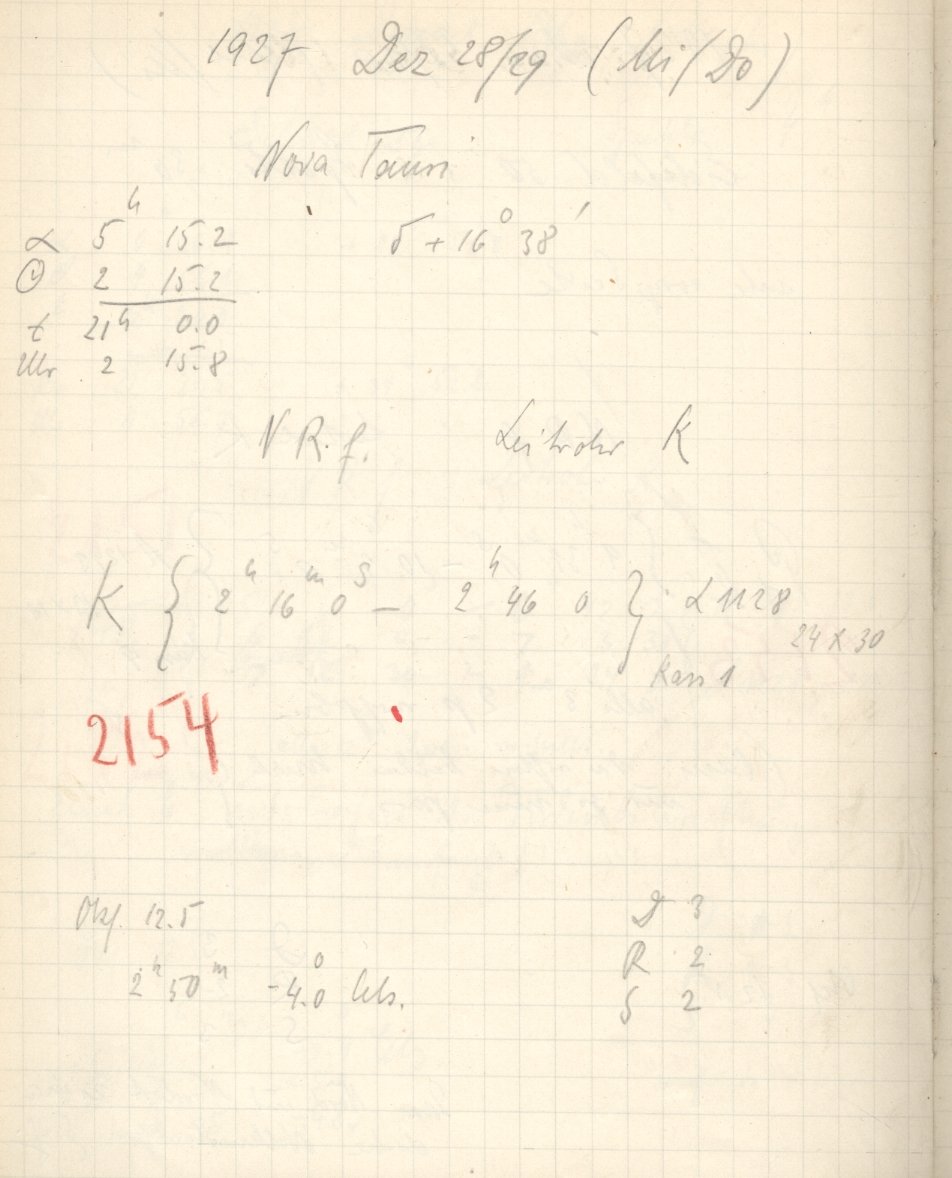 1927 Dez 28/29 (Mi/Do)
Nova Tauri
α 5ʰ 15.2 δ + 16° 38'
☉ 2 15.2
t 21ʰ 0.0
Uhr 2 15.8
N R. f. Leitrohr K
K { 2ʰ 16ᵐ 0ˢ – 2ʰ 46 0 } α 1128
24 x 30
Kass 1
2154
Obj. 12.5 D 3
R 2
2ʰ 50ᵐ -4.0° S 2